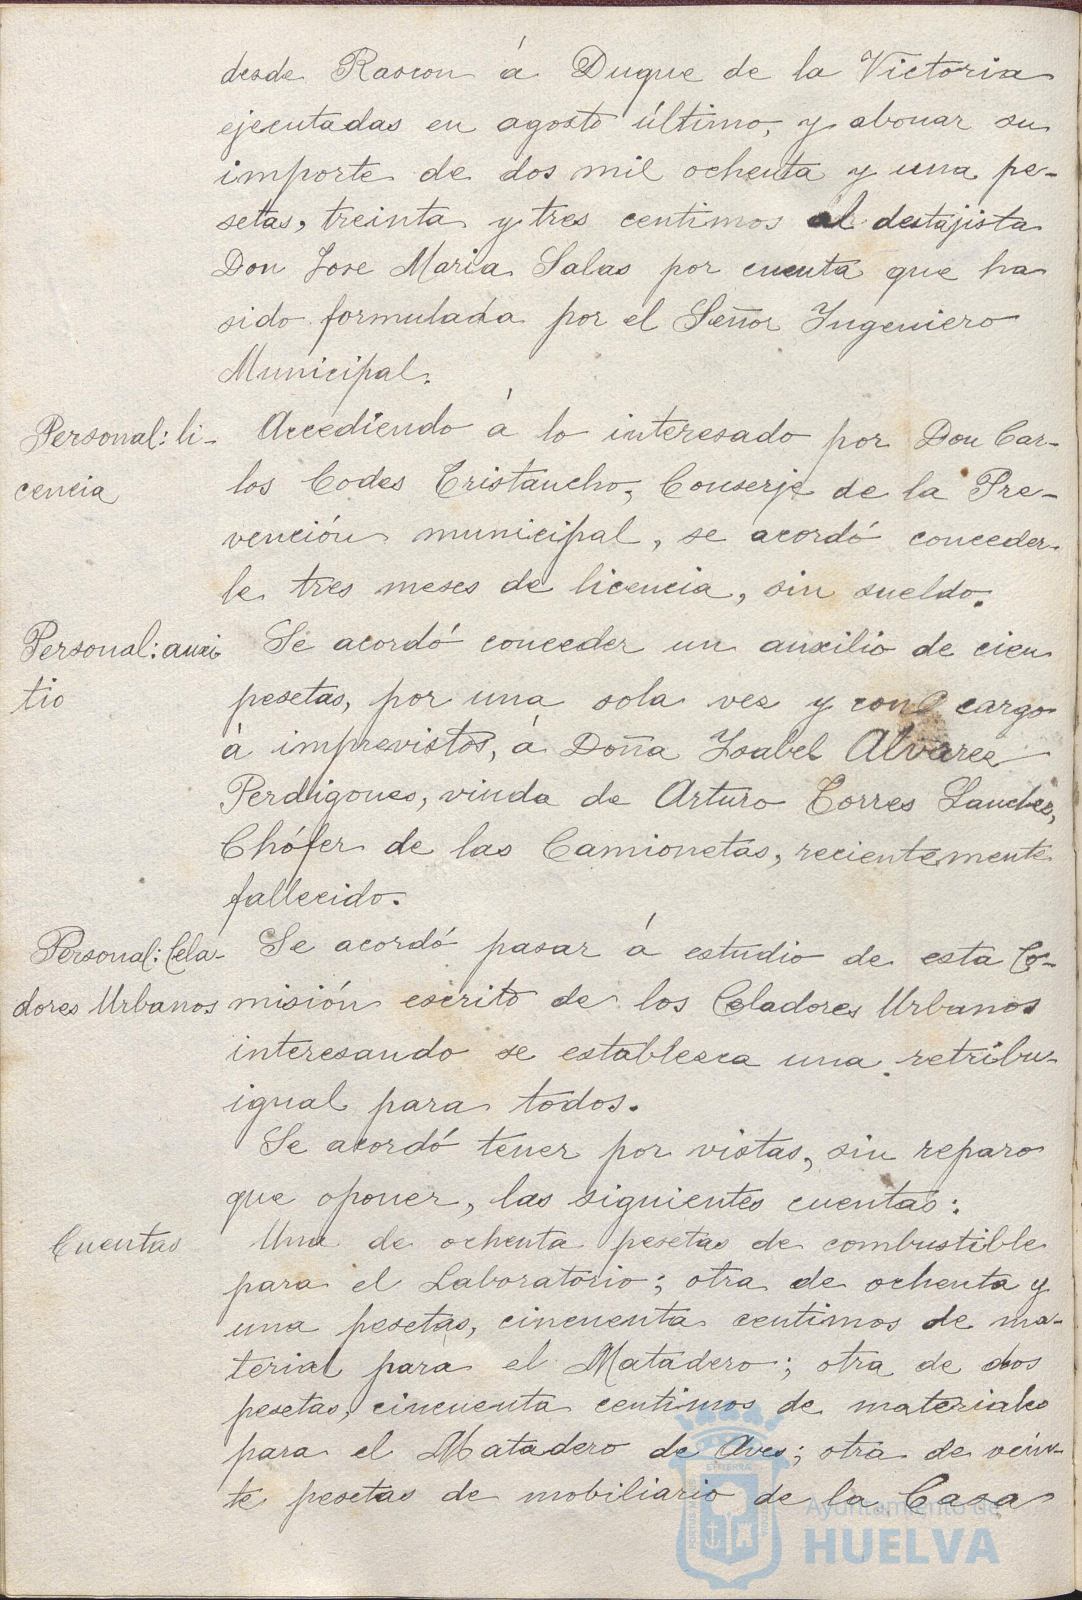 desde Rascon á Duque de la Victoria
ejecutadas en agosto último, y abonar su
importe de dos mil ochenta y una pe-
setas, treinta y tres centimos al destajista
Don Jose Maria Salas por cuenta que ha
sido formulada por el Señor Ingeniero
Municipal.
Personal: li-
cencia
Accediendo á lo interesado por Don Car-
los Codes Tristancho, Conserje de la Pre-
vención municipal, se acordó conceder-
le tres meses de licencia, sin sueldo.
Personal: auxi
lio
Se acordó conceder un auxilio de cien
pesetas, por una sola vez y con cargo
á imprevistos, á Doña Isabel Alvarez
Perdigones, viuda de Arturo Torres Sanchez,
Chófer de las Camionetas, recientemente
fallecido.
Personal: Cela-
dores Urbanos
Se acordó pasar á estudio de esta Co-
misión escrito de los Celadores Urbanos
interesando se establezca una retribu-
igual para todos.
Se acordó tener por vistas, sin reparo
que oponer, las siguientes cuentas:
Cuentas
Una de ochenta pesetas de combustible
para el Laboratorio; otra de ochenta y
una pesetas, cincuenta centimos de ma-
terial para el Matadero; otra de dos
pesetas, cincuenta centimos de materiales
para el Matadero de Aves; otra de vein-
te pesetas de mobiliario de la Casa
Ayuntamiento de
HUELVA